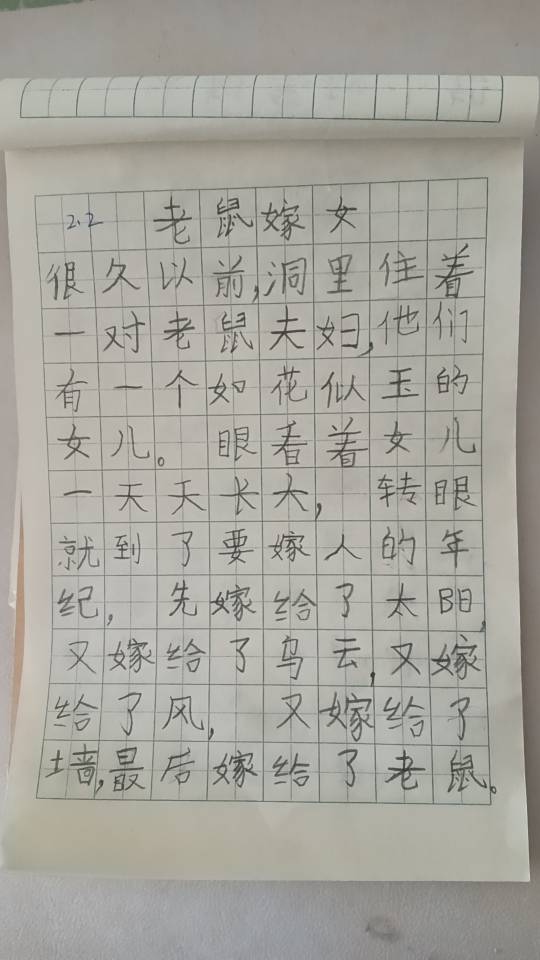 2.2 老鼠嫁女
很久以前,洞里住着
一对老鼠夫妇,他们
有一个如花似玉的
女儿。眼看着女儿
一天天长大,转眼
就到了要嫁人的年
纪,先嫁给了太阳,
又嫁给了乌云,又嫁
给了风,又嫁给了
墙,最后嫁给了老鼠。